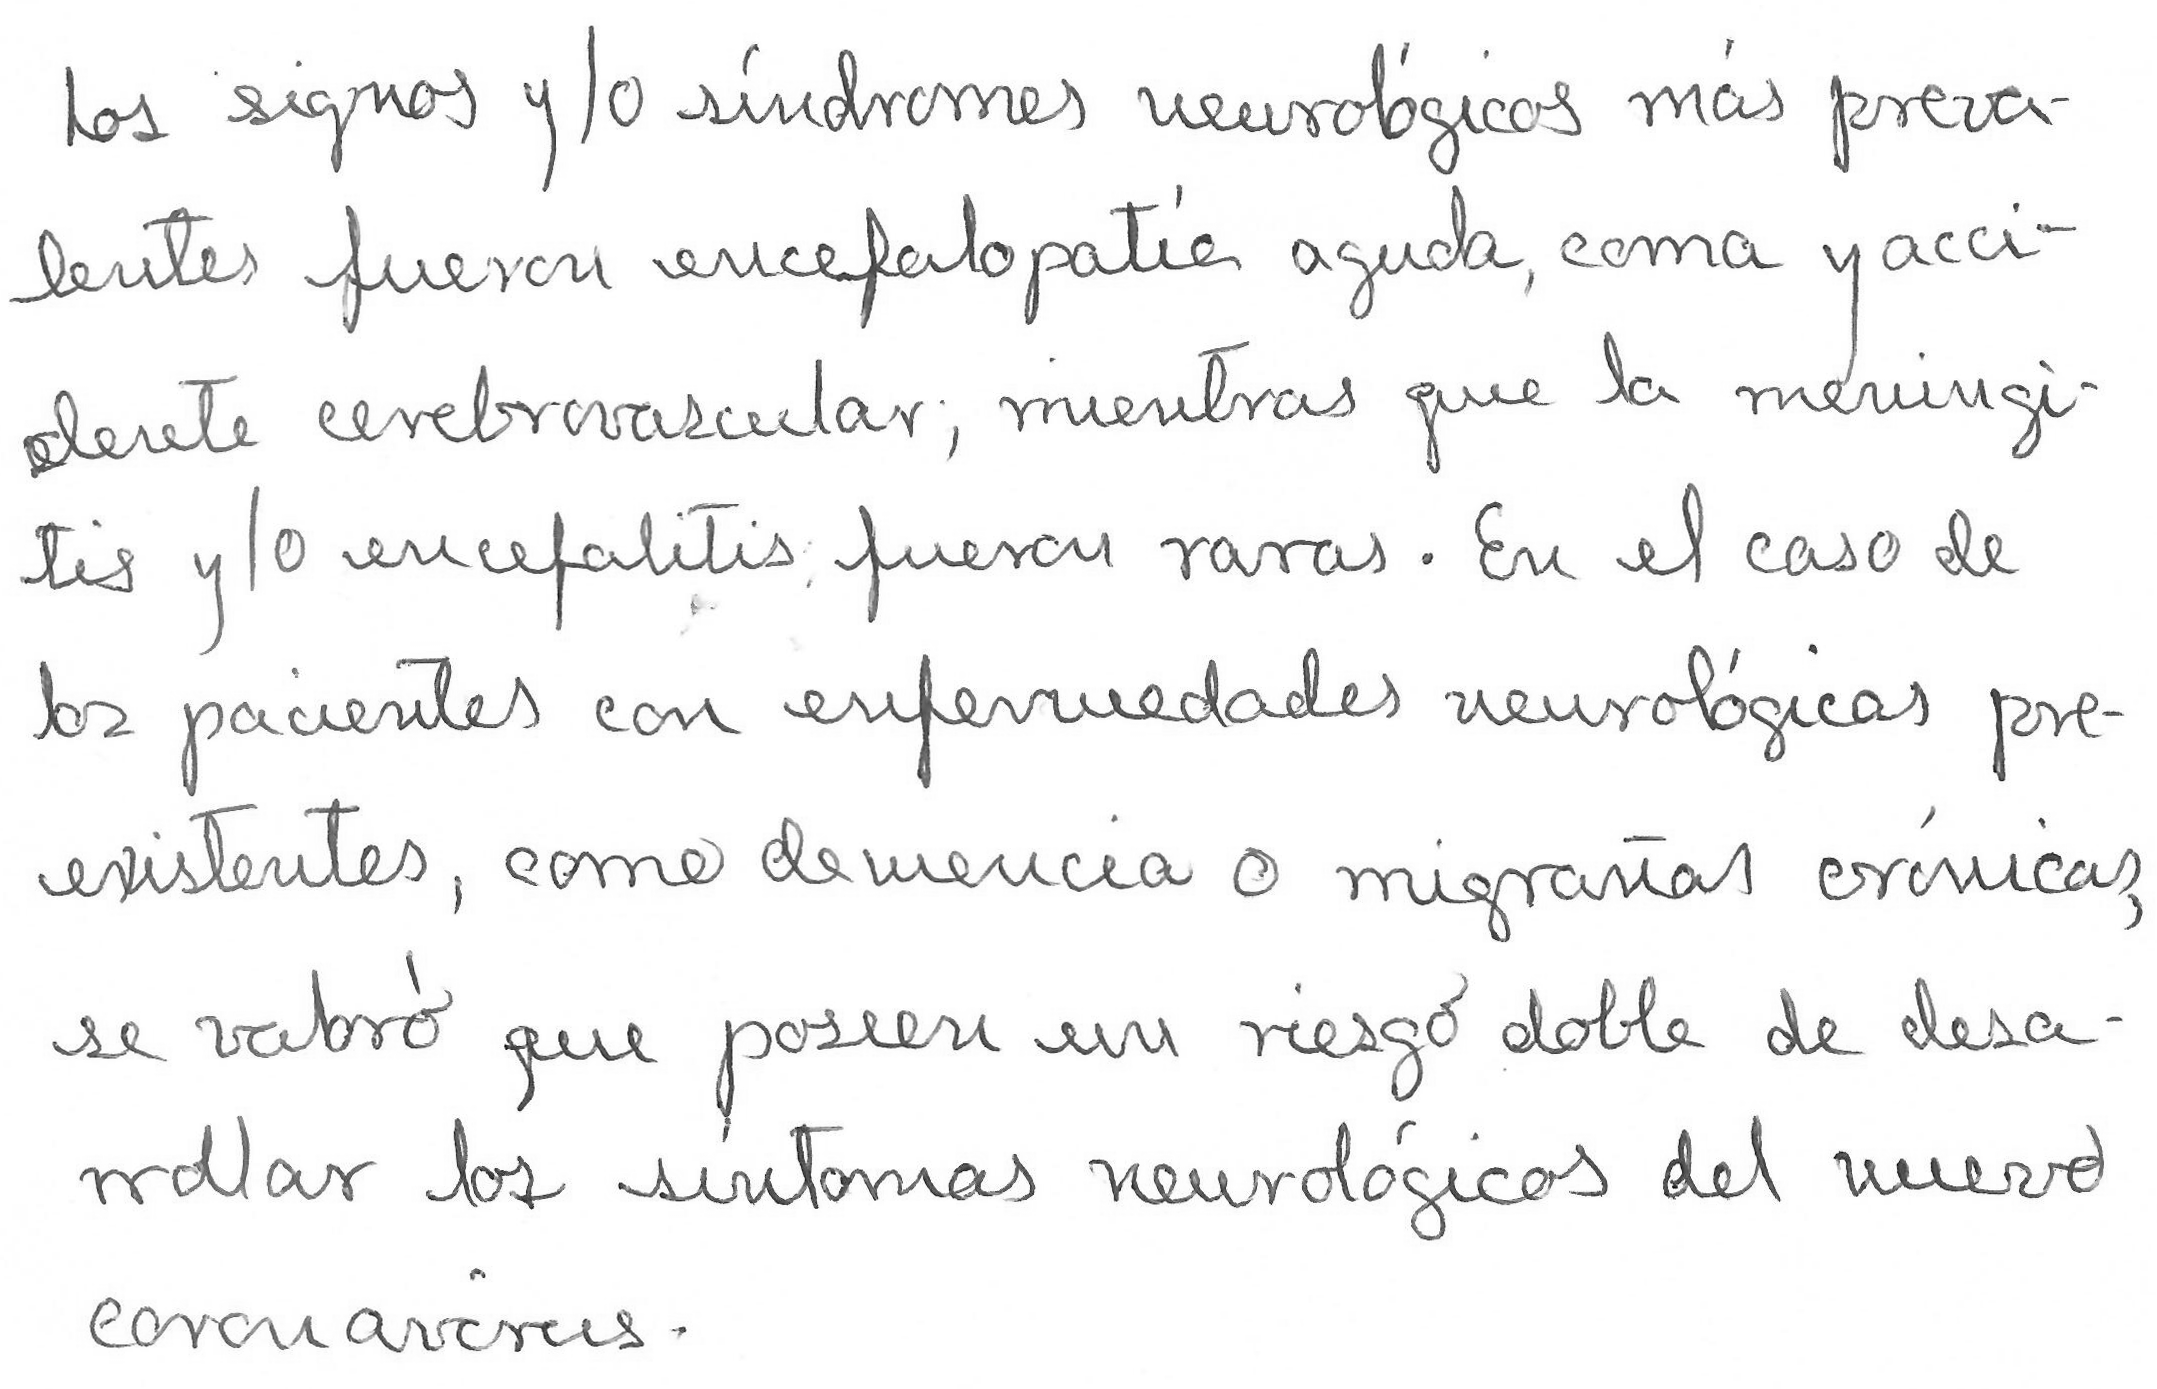 Los signos y/o síndromes neurológicos más preva-
lentes fueron encefalopatía aguda, coma y acci-
dente cerebrovascular, mientras que la meningi-
tis y/o encefalitis fueron raras. En el caso de
los pacientes con enfermedades neurológicas pre-
existentes, como demencia o migrañas crónicas,
se valoró que poseen un riesgo doble de desa-
rrollar los síntomas neurológicos del nuevo
coronavirus.